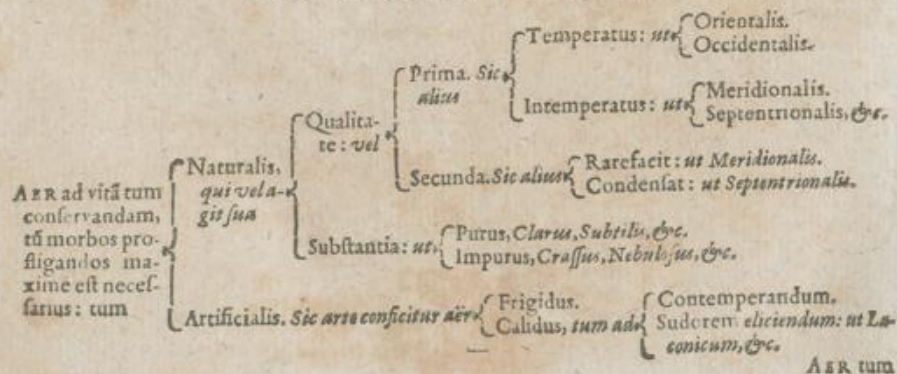 AER ad vitã tum
conservandam,
tũ morbos pro-
fligandos ma-
xime est neces-
sarius: tum
Naturalis,
qui vel a-
git sua
Qualita-
te: vel
Prima. Sic
alius
Temperatus: ut
Orientalis.
Occidentalis.
Intemperatus: ut
Meridionalis.
Septentrionalis, &c.
Secunda. Sic alius
Rarefacit: ut Meridionalis.
Condensat: ut Septentrionalis.
Substantia: ut
Purus, Clarus, Subtilis, &c.
Impurus, Crassus, Nebulosus, &c.
Artificialis. Sic arte conficitur aër
Frigidus.
Calidus, tum ad
Contemperandum.
Sudorem eliciendum: ut La-
conicum, &c.
AER tum